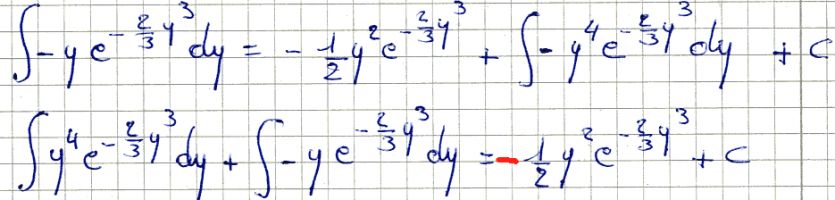 ∫-y e^{-\frac{2}{3}y^3} dy = -\frac{1}{2}y^2 e^{-\frac{2}{3}y^3} + ∫-y^4 e^{-\frac{2}{3}y^3} dy + c
∫y^4 e^{-\frac{2}{3}y^3} dy + ∫-y e^{-\frac{2}{3}y^3} dy = -\frac{1}{2}y^2 e^{-\frac{2}{3}y^3} + c